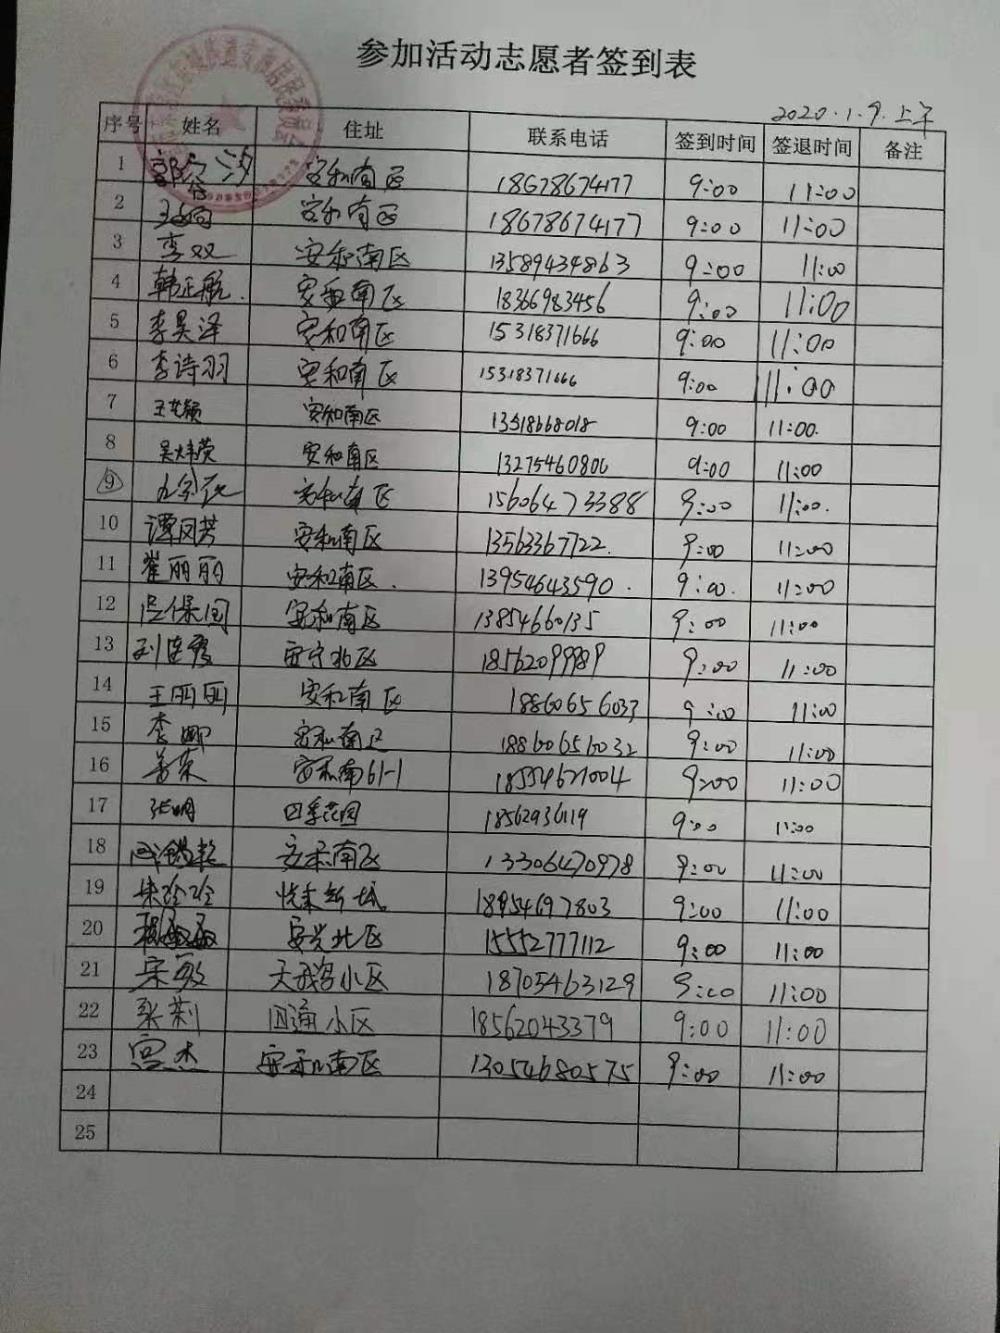 参加活动志愿者签到表
2020.1.9.上午
序号 姓名 住址 联系电话 签到时间 签退时间 备注
1 安和南区 18678674177 9:00 11:00
2 安和南区 18678674177 9:00 11:00
3 李双 安和南区 13589434863 9:00 11:00
4 韩正航. 安和南区 18366983456 9:00 11:00
5 李昊泽 安和南区 15318371666 9:00 11:00
6 李诗羽 安和南区 15318371666 9:00 11:00
7 安和南区 9:00 11:00.
8 吴炜荧 安和南区 13275460806 9:00 11:00
9 安和南区 15606473388 9:00 11:00.
10 谭凤芳 安和南区 13563367722. 9:00 11:00
11 崔丽丽 安和南区. 13954643590. 9:00. 11:00
12 吕保国 安和南区 13854660135 9:00 11:00
13 刘连秀 安宁北区 18562099989 9:00 11:00
14 王丽丽 安和南区 18860656033 9:00 11:00
15 李娜 安和南区 18860656032 9:00 11:00
16 安和南61-1 18554621004 9:00 11:00
17 张明 四季花园 18562936119 9:00 11:00
18 安和南区 13306470978 9:00 11:00
19 朱玲玲 悦来新城 18954697803 9:00 11:00
20 安兴北区 15552777112 9:00 11:00
21 宋敏 小区 18705463129 9:00 11:00
22 张荆 小区 18562043379 9:00 11:00
23 宫杰 安和南区 13054680575 9:00 11:00
24
25